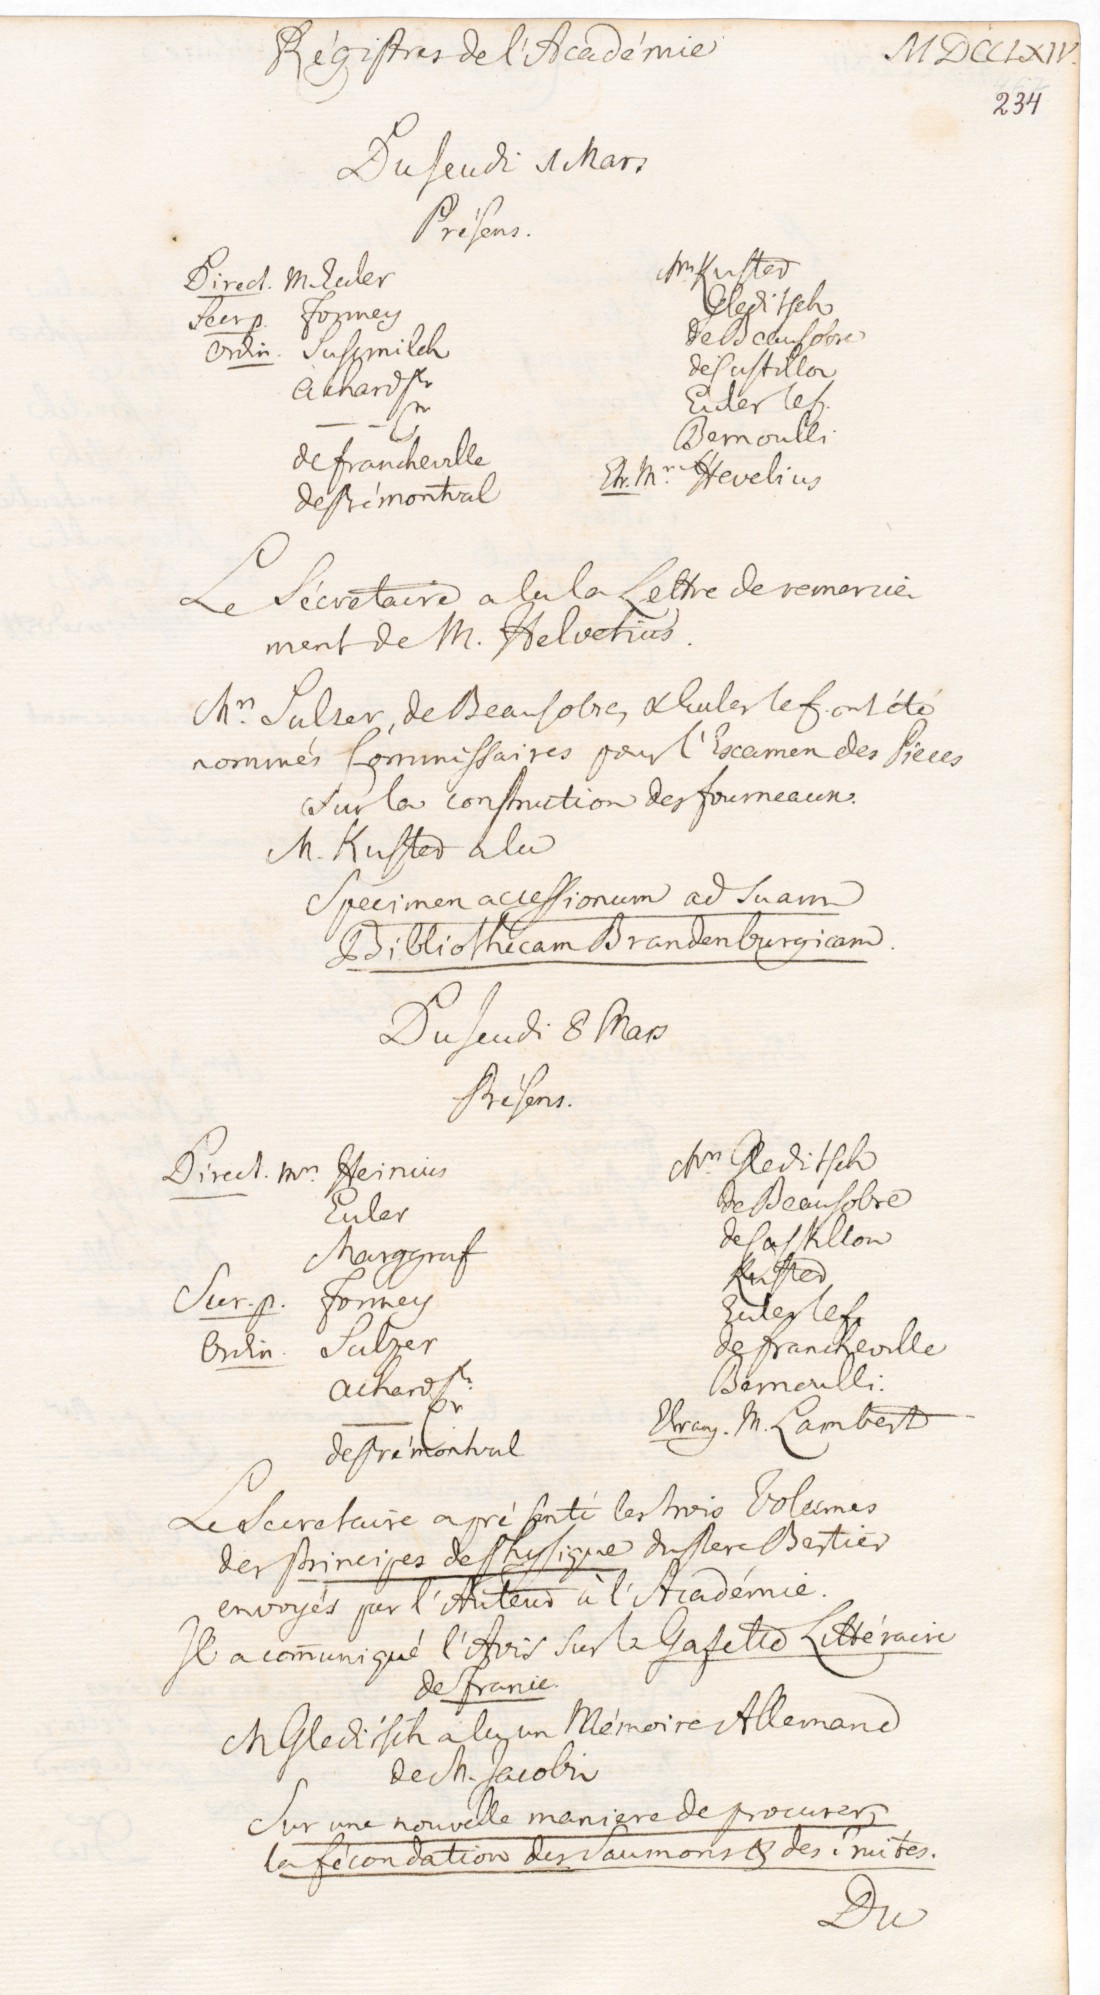 Régistres de l'Académie MDCCLXIV.
234
Du Jeudi 1 Mars
Présens.
Direct. M. Euler
Secr p. Formey
Ordin. Susmilch
Achard Sr
— — Jr
de Francheville
de Prémontval
Mrs Kuster
Gleditsch
de Beausobre
de Castillon
Euler le f.
Bernoulli
Etr. Mr. Hevelius
Le Sécretaire a lu la Lettre de remercie
ment de M. Helvetius.
Mrs. Sulzer, de Beausobre, & Euler le f. ont été
nommés Commissaires pour l'Examen des Pieces
sur la construction des fourneaux.
M. Kuster a lu
Specimen accessionum ad suam
Bibliothecam Brandenburgicam.
Du Jeudi 8 Mars
Présens.
Direct. Mrs. Heinius
Euler
Marggraf
Secr. p. Formey
Ordin. Sulzer
Achard Sr.
— Jr
de Prémontval
Mrs Gleditsch
de Beausobre
de Castillon
Kuster
Euler le f.
de Francheville
Bernoulli.
Etrang. M. Lambert
Le Secretaire a présenté les trois Volumes
des Principes de Physique du Pere Bertier
envoyés par l'Auteur à l'Académie.
Il a com̅uniqué l'Avis sur la Gasette Littéraire
de France.
M Gleditsch a lu un Mémoire Allemand
de M. Jacobi
Sur une nouvelle maniere de procurer
la fécondation des Saumons & des Truites.
Du